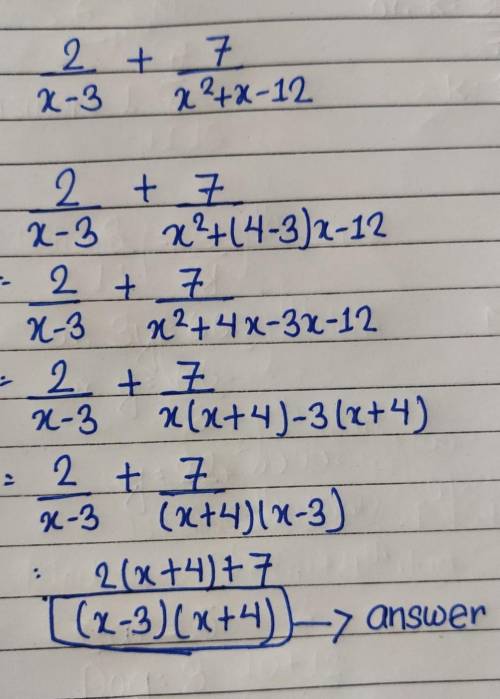 2/(x-3) + 7/(x²+x-12)
2/(x-3) + 7/(x²+(4-3)x-12)
= 2/(x-3) + 7/(x²+4x-3x-12)
= 2/(x-3) + 7/(x(x+4)-3(x+4))
= 2/(x-3) + 7/((x+4)(x-3))
: 2(x+4)+7
(x-3)(x+4) → answer